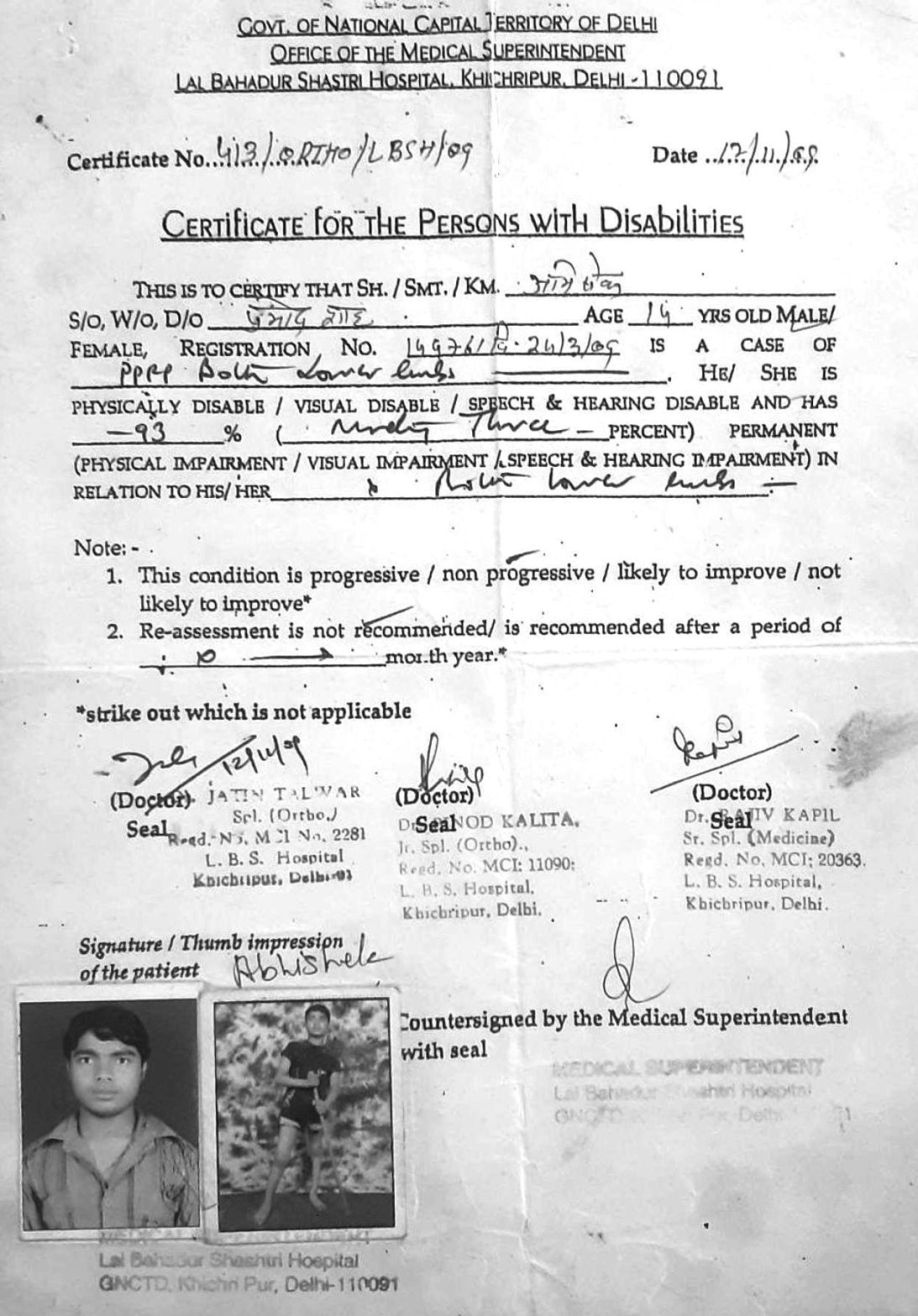 GOVT. OF NATIONAL CAPITAL TERRITORY OF DELHI
OFFICE OF THE MEDICAL SUPERINTENDENT
LAL BAHADUR SHASTRI HOSPITAL, KHICHRIPUR, DELHI -110091
Certificate No..413/ORTHO/LBSH/09 Date ..12/11/09.
CERTIFICATE FOR THE PERSONS WITH DISABILITIES
THIS IS TO CERTIFY THAT SH. / SMT. / KM.
S/O, W/O, D/O AGE 14 YRS OLD MALE/
FEMALE, REGISTRATION NO. 24/3/09 IS A CASE OF
PPRP Both Lower limbs . HE/ SHE IS
PHYSICALLY DISABLE / VISUAL DISABLE / SPEECH & HEARING DISABLE AND HAS
-93 % ( Ninety Three - PERCENT) PERMANENT
(PHYSICAL IMPAIRMENT / VISUAL IMPAIRMENT / SPEECH & HEARING IMPAIRMENT) IN
RELATION TO HIS/ HER Both lower limbs -
Note: -
1. This condition is progressive / non progressive / likely to improve / not
likely to improve*
2. Re-assessment is not recommended/ is recommended after a period of
month year.*
*strike out which is not applicable
12/11/09
(Doctor) (Doctor) (Doctor)
Seal Seal Seal
JATIN TALWAR
Spl. (Ortho.)
Regd. No. MCI No. 2281
L. B. S. Hospital
Khichripur, Delhi-91
KALITA,
Jr. Spl. (Ortho).,
Regd. No. MCI: 11090:
L. B. S. Hospital,
Khichripur, Delhi.
Dr. RAJIV KAPIL
Sr. Spl. (Medicine)
Regd. No. MCI: 20363.
L. B. S. Hospital,
Khichripur, Delhi.
Signature / Thumb impression
of the patient Abhishek
Countersigned by the Medical Superintendent
with seal
MEDICAL SUPERINTENDENT
Lal Bahadur Shashtri Hospital
GNCTD, Khichri Pur, Delhi
Lal Bahadur Shashtri Hospital
GNCTD, Khichri Pur, Delhi-110091